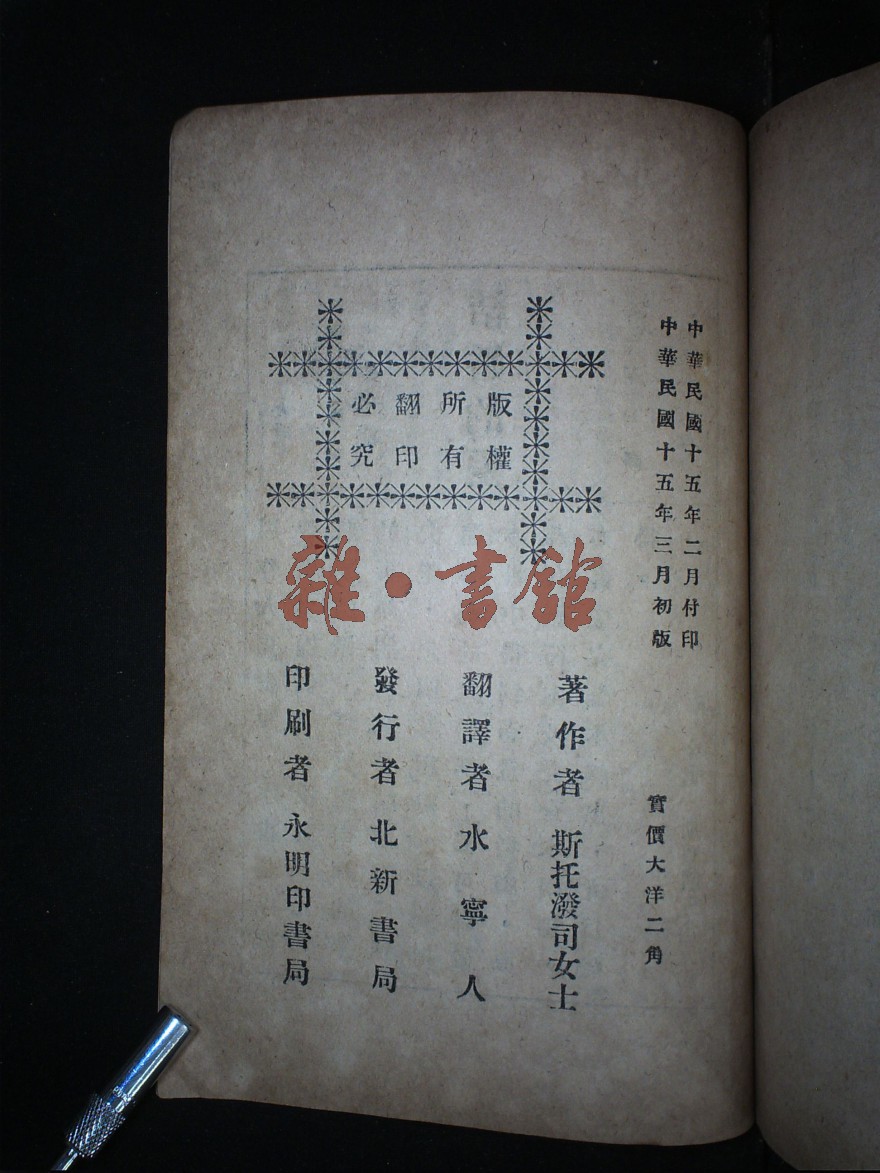 中華民國十五年二月付印
中華民國十五年三月初版
實價大洋二角
版權
所有
翻印
必究
雜·書館
著作者 斯托潑司女士
翻譯者 水寧人
發行者 北新書局
印刷者 永明印書局